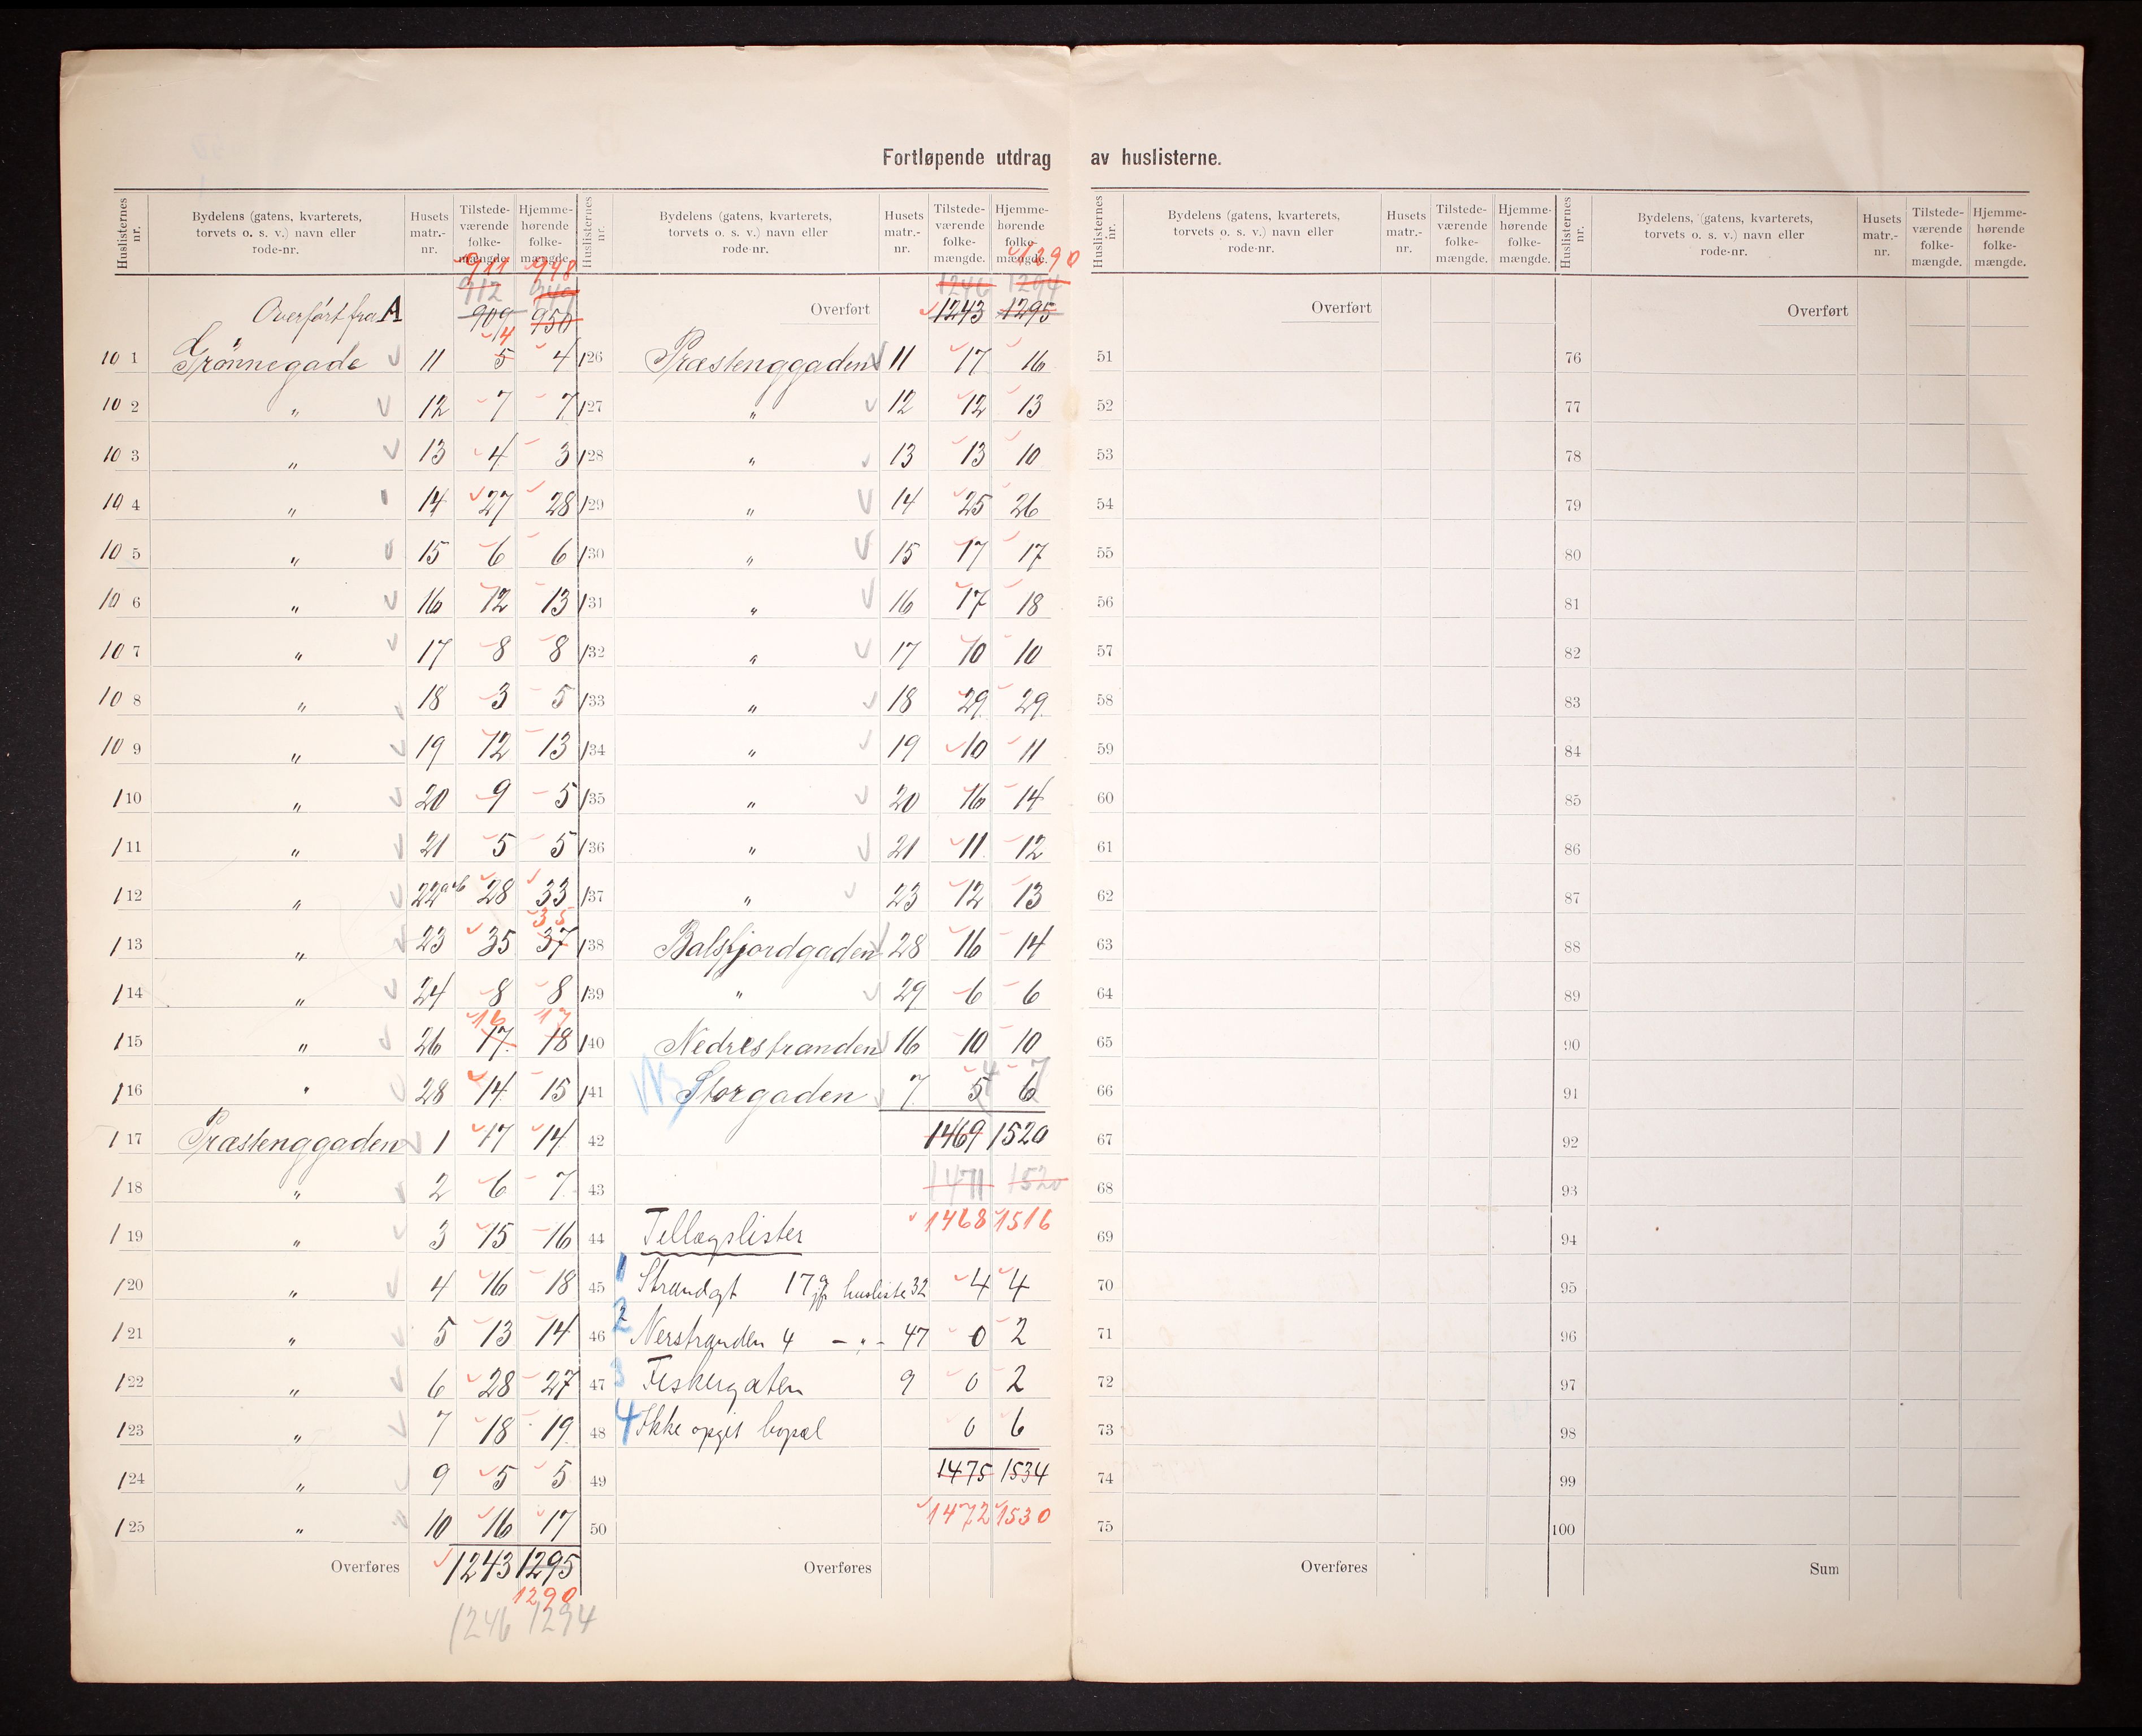 Fortløpende utdrag av huslisterne.
Huslisternes nr. Bydelens (gatens, kvarterets, torvets o. s. v.) navn eller rode-nr. Husets matr.-nr. Tilstedeværende folkemængde. Hjemmehørende folkemængde.
911 948
912 949
Overført fra A 909 950
4
101 Grønnegade 11 5 4
102 " 12 7 7
103 " 13 4 3
104 " 14 27 28
105 " 15 6 6
106 " 16 12 13
107 " 17 8 8
108 " 18 3 5
109 " 19 12 13
110 " 20 9 5
111 " 21 5 5
112 " 22a+b 28 33
35
113 " 23 35 37
114 " 24 8 8
16 17
115 " 26 17 18
116 " 28 14 15
117 Præstenggaden 1 17 14
118 " 2 6 7
119 " 3 15 16
120 " 4 16 18
121 " 5 13 14
122 " 6 28 27
123 " 7 18 19
124 " 9 5 5
125 " 10 16 17
Overføres 1243 1295
1290
1246 1294
Huslisternes nr. Bydelens (gatens, kvarterets, torvets o. s. v.) navn eller rode-nr. Husets matr.-nr. Tilstedeværende folkemængde. Hjemmehørende folkemængde.
1290
1246 1294
Overført 1243 1295
126 Præstenggaden 11 17 16
127 " 12 12 13
128 " 13 13 10
129 " 14 25 26
130 " 15 17 17
131 " 16 17 18
132 " 17 10 10
133 " 18 29 29
134 " 19 10 11
135 " 20 16 14
136 " 21 11 12
137 " 23 12 13
138 Balsfjordgaden 28 16 14
139 " 29 6 6
140 Nedrestranden 16 10 10
4 7
141 Storgaden 7 5 6
42 1469 1520
43 1471 1520
1468 1516
44 Tillægslister
45 1 Strandgt 17 husliste 32 4 4
46 2 Nerstranden 4 - " - 47 0 2
47 3 Fiskergaten 9 0 2
48 4 Ikke opgit bopæl 0 6
49 1475 1534
50 1472 1530
Overføres
Huslisternes nr. Bydelens (gatens, kvarterets, torvets o. s. v.) navn eller rode-nr. Husets matr.-nr. Tilstedeværende folkemængde. Hjemmehørende folkemængde.
Overført
51
52
53
54
55
56
57
58
59
60
61
62
63
64
65
66
67
68
69
70
71
72
73
74
75
Overføres
Huslisternes nr. Bydelens, (gatens, kvarterets, torvets o. s. v.) navn eller rode-nr. Husets matr.-nr. Tilstedeværende folkemængde. Hjemmehørende folkemængde.
Overført
76
77
78
79
80
81
82
83
84
85
86
87
88
89
90
91
92
93
94
95
96
97
98
99
100
Sum